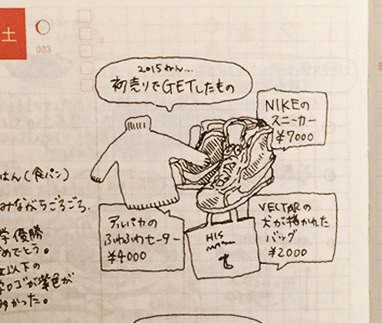 土
003
2015ねん...
初売りでGETしたもの
NIKEの
スニーカー
¥7000
はん(食パン)
みながらごろごろ.
学優勝
めでとう。
以下の
ロゴが紫色が
かった。
アルパカの
ふわふわセーター
¥4000
HIS
VECTARの
犬が描かれた
バッグ
¥2000